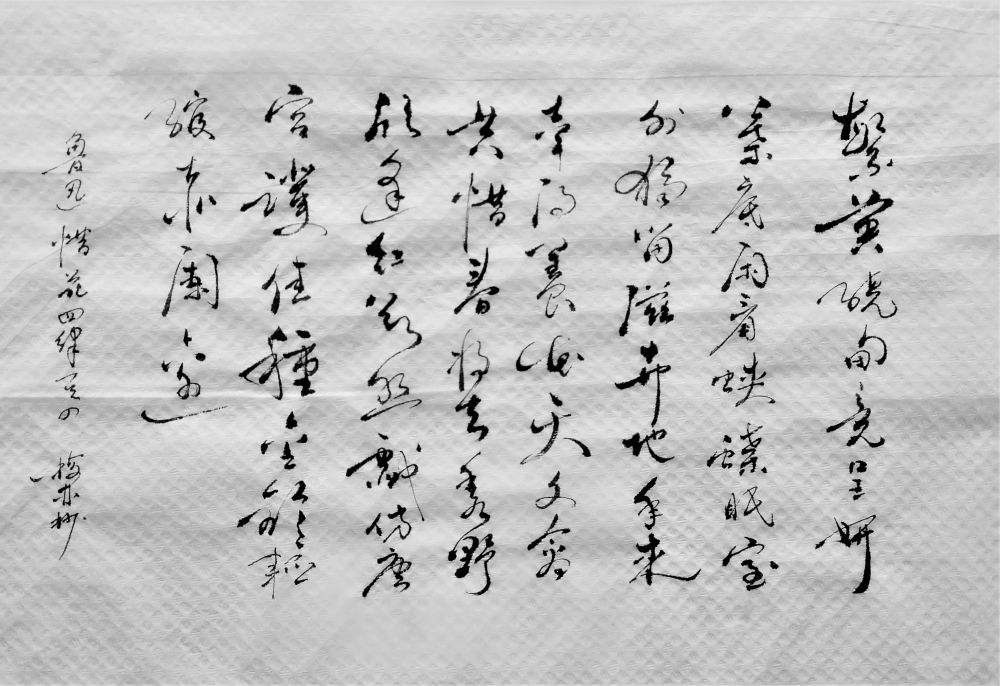 繁英繞甸竞呈妍
葉底闲看蛺蝶眠室
外獨留滋卉地年来
幸得養花天文禽
共惜春将去秀野
欣逢红欲然戲仿唐
宫護佳種金鈴輕
綰赤闌邊
魯迅惜花四律其四